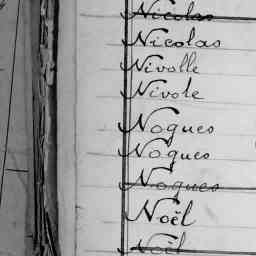 Nicolas
Nicolas
Nivolle
Nivole
Nogues
Nogues
Nogues
Noël
Noël